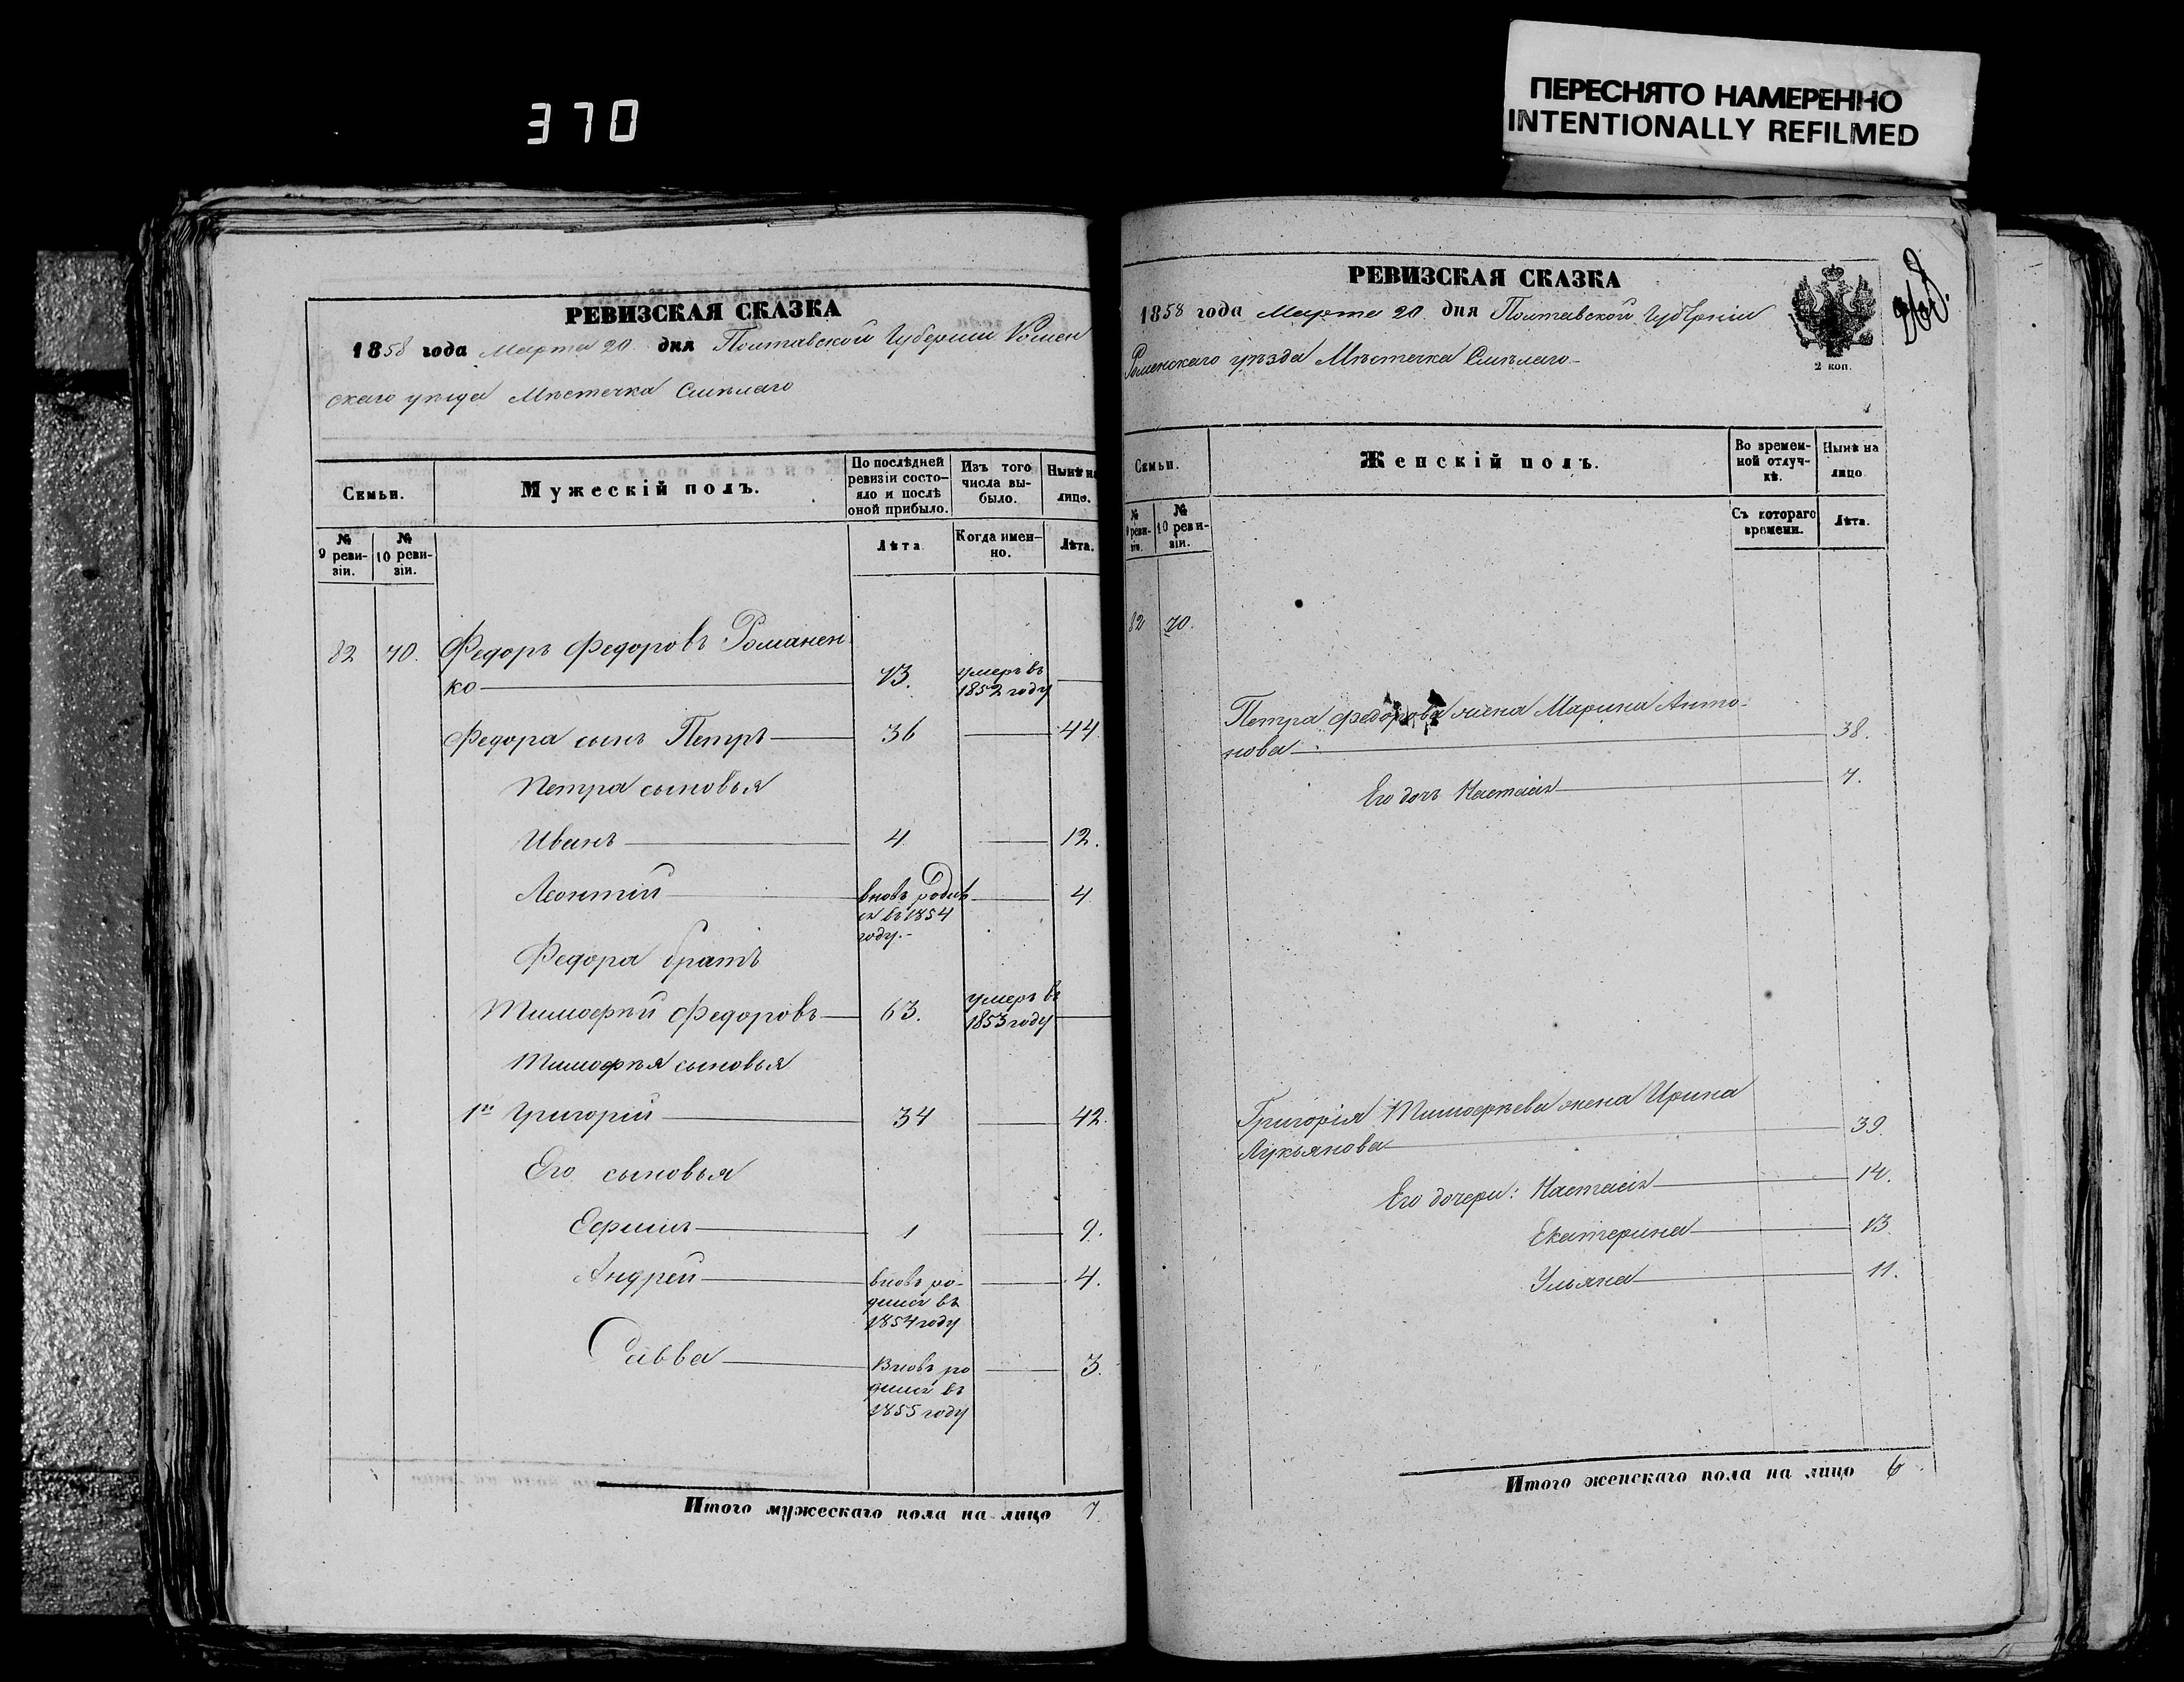 370
ПЕРЕСНЯТО НАМЕРЕННО
INTENTIONALLY REFILMED
РЕВИЗСКАЯ СКАЗКА
1858 года Марта 20 дня Полтавской Губерніи Ромен
скаго уѣзда Мѣстечка Смѣлаго
Семьи.
Мужескій полъ.
По послѣдней ревизіи состояло и послѣ оной прибыло.
Изъ того числа выбыло.
Нынѣ на лицо.
№ 9 ревизіи.
№ 10 ревизіи.
Лѣта
Когда именно.
Лѣта.
82 70. Федоръ Федоровъ Романен
ко 73. умеръ въ 1852 году
Федора сынъ Петръ 36 44
Петра сыновья
Иванъ 4 12.
Леонтій вновь родив ся въ 1854 году. 4
Федора братъ
Тимофѣй Федоровъ 63. умеръ въ 1853 году
Тимофѣя сыновья
1й Григорій 34 42.
Его сыновья
Ефимъ 1 9.
Андрей вновь родился въ 1854 году 4.
Савва Вновь родился въ 1855 году 3.
Итого мужескаго пола на лицо 7
РЕВИЗСКАЯ СКАЗКА
1858 года Марта 20 дня Полтавской Губерніи
Роменскаго уѣзда Мѣстечка Смѣлаго
2 коп.
Семьи.
Женскій полъ.
Во временной отлучкѣ.
Нынѣ на лицо
№ 9 ревизіи.
№ 10 ревизіи.
Съ котораго времени.
Лѣта.
82 70.
Петра Федорова жена Марина Анто-
нова 38.
Его дочь Настасія 7.
Григорія Тимофѣева жена Ирина
Лукьянова 39.
Его дочери: Настасія 14.
Екатерина 13.
Ульяна 11.
Итого женскаго пола на лицо 6